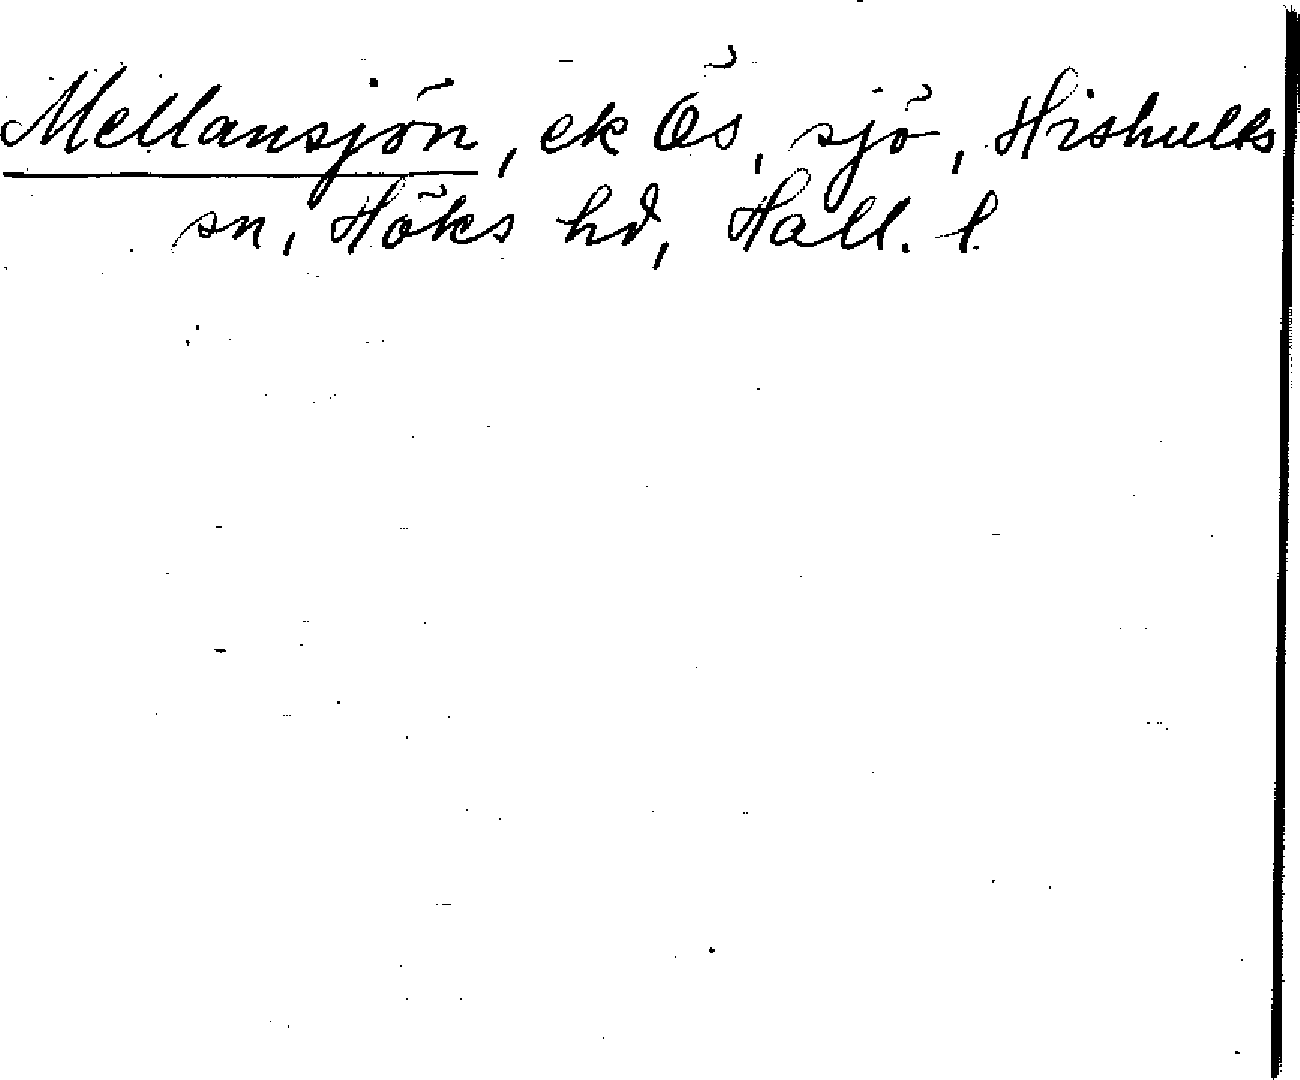 Mellansjön, ek Ös, sjö, Hishults
sn, Höks hd, Hall. l.